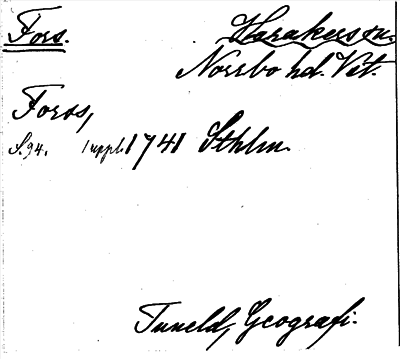 Fors. Haraker sn.
Norrbo hd. Vet.
Forss,
S. 94. 1 uppl. 1741 Sthlm.
Tuneld, Geografi.